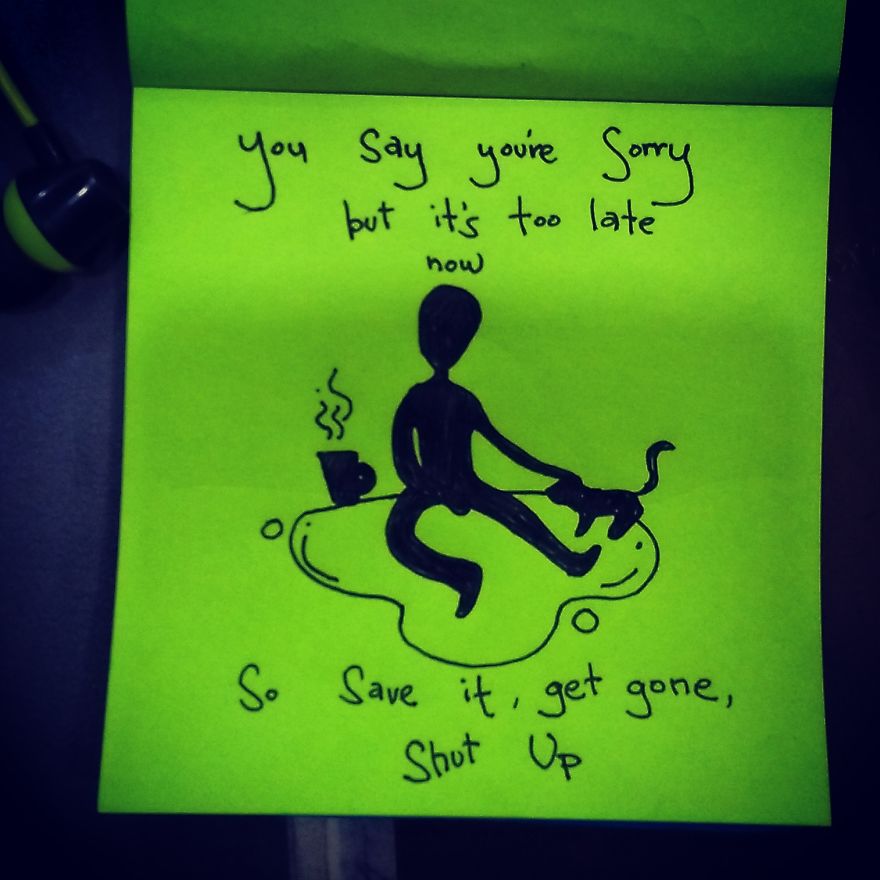 You say you're sorry
but it's too late
now
So save it, get gone,
Shut Up